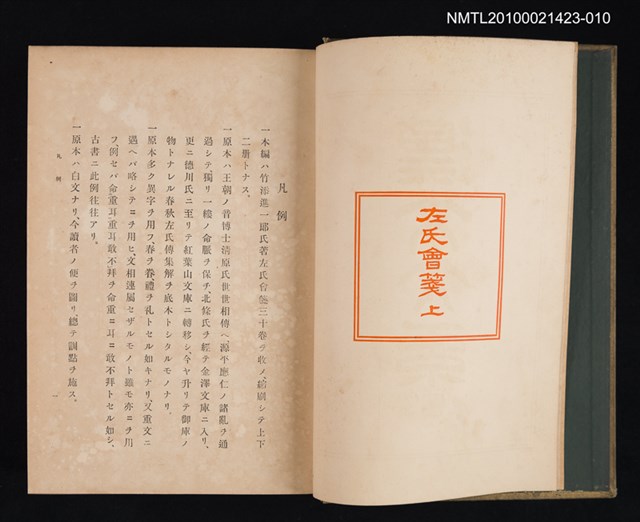 NMTL20100021423-010
左氏會箋 上
凡例
一本編ハ竹添進一郎氏著左氏會箋三十卷ヲ收ノ、縮刷シテ上下
二册トナス、
一原本ハ王朝ノ昔博士淸原氏世世相傳ヘ、源平應仁ノ諸亂ヲ通
過シテ、獨リ一綫ノ命脈ヲ保チ、北條氏ヲ經テ金澤文庫ニ入リ、
更ニ德川氏ニ至リテ紅葉山文庫ニ轉移シ、今ヤ升リテ御庫ノ
物トナレル春秋左氏傳集解ヲ底本トシタルモノナリ、
一原本多ク異字ヲ用フ、春ヲ旾禮ヲ礼トセル如キナリ、又重文ニ
遇ヘバ略シテニヲ用ヒ、文相連屬セザルモノト雖モ亦ニヲ用
フ、例セバ命重耳、重耳敢不拜ヲ命重ニ耳ニ敢不拜トセル如シ、
古書ニ此例往往アリ、
一原本ハ白文ナリ、今讀者ノ便ヲ圖リ、總テ訓點ヲ施ス、
凡例
一